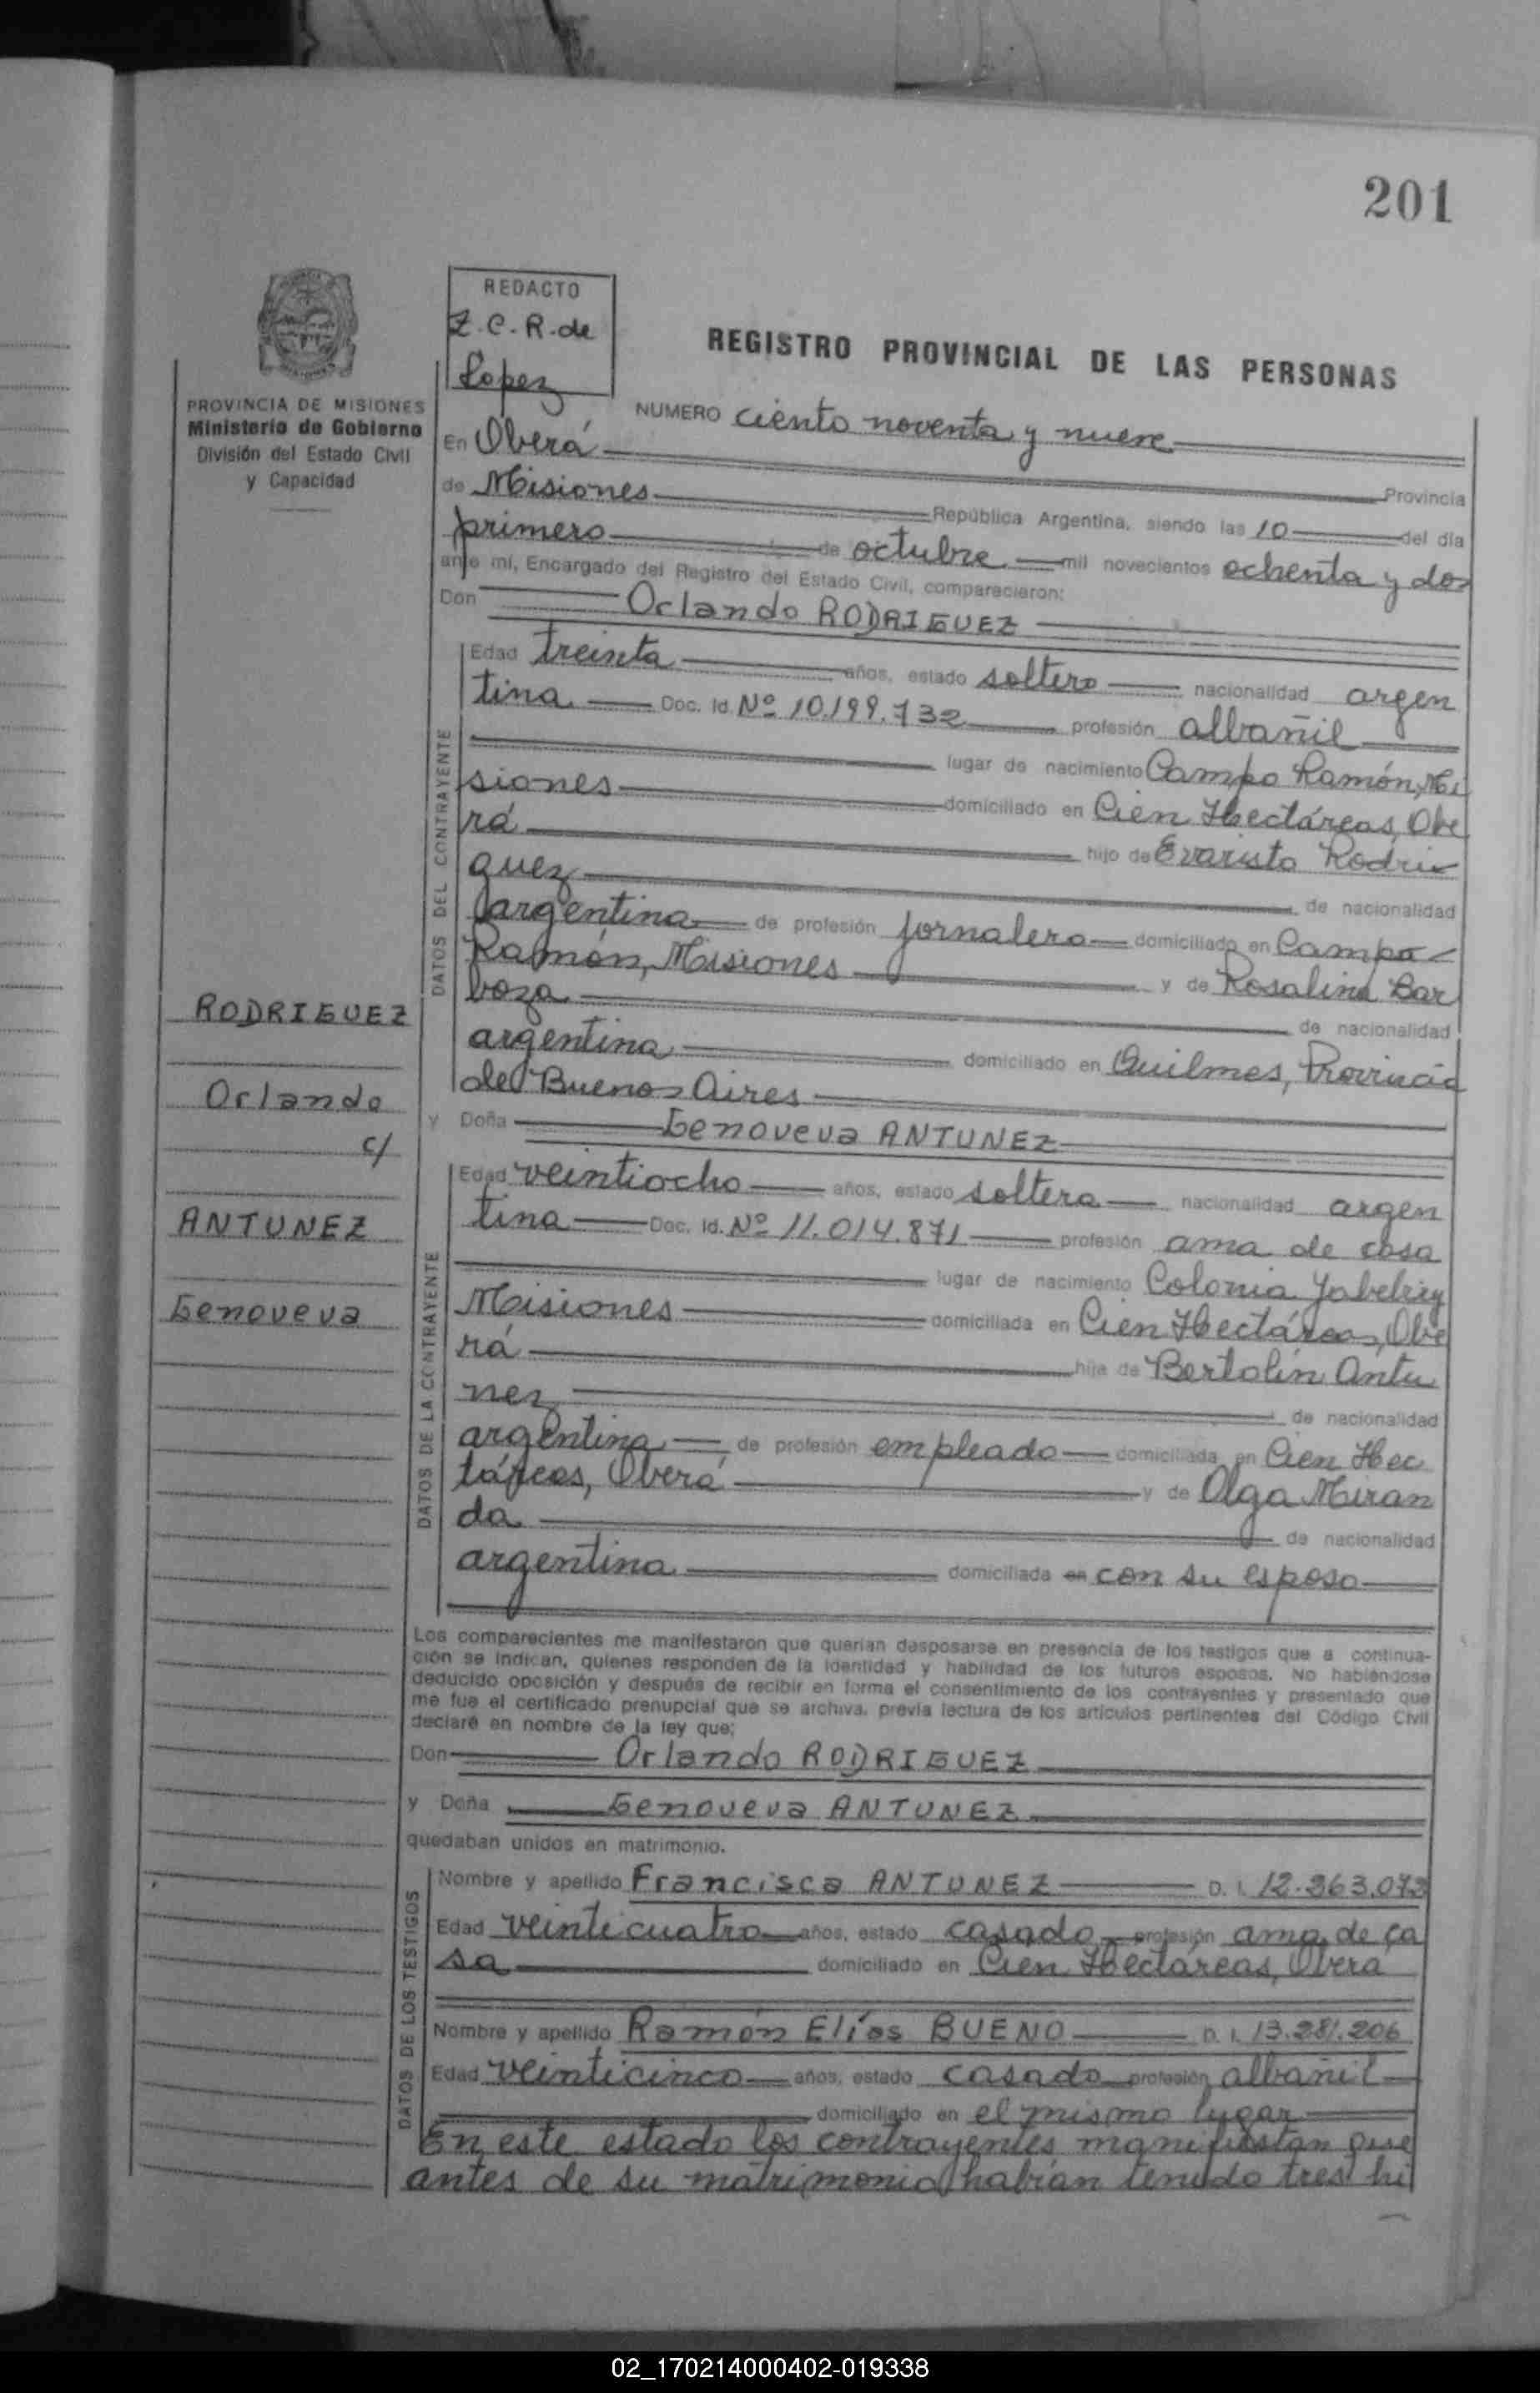 201
REDACTO
Z.C.R. de
Lopez
REGISTRO PROVINCIAL DE LAS PERSONAS
PROVINCIA DE MISIONES
Ministerio de Gobierno
División del Estado Civil
y Capacidad
NUMERO ciento noventa y nueve
En Oberá
Provincia
de Misiones República Argentina, siendo las 10 del día
primero de octubre mil novecientos ochenta y dos
ante mí, Encargado del Registro del Estado Civil, comparecieron:
Don Orlando RODRIGUEZ
DATOS DEL CONTRAYENTE
Edad treinta años, estado soltero nacionalidad argen
tina Doc. Id. Nº 10.199.732 profesión albañil
lugar de nacimiento Campo Ramón, Mi
siones domiciliado en Cien Hectáreas, Obe
rá hijo de Evaristo Rodri
guez de nacionalidad
argentina de profesión jornalero domiciliado en Campo
Ramón, Misiones y de Rosalina Bar
boza de nacionalidad
argentina domiciliado en Quilmes, Provincia
de Buenos Aires
RODRIGUEZ
Orlando
c/
ANTUNEZ
Genoveva
y Doña Genoveva ANTUNEZ
DATOS DE LA CONTRAYENTE
Edad veintiocho años, estado soltera nacionalidad argen
tina Doc. Id. Nº 11.014.871 profesión ama de casa
lugar de nacimiento Colonia Yabebiry
Misiones domiciliada en Cien Hectáreas, Obe
rá hija de Bertolin Antu
nez de nacionalidad
argentina de profesión empleado domiciliada en Cien Hec
táreas, Oberá y de Olga Miran
da de nacionalidad
argentina domiciliada en con su esposo
Los comparecientes me manifestaron que querían desposarse en presencia de los testigos que a continua-
ción se indican, quienes responden de la identidad y habilidad de los futuros esposos. No habiéndose
deducido oposición y después de recibir en forma el consentimiento de los contrayentes y presentado que
me fue el certificado prenupcial que se archiva, previa lectura de los artículos pertinentes del Código Civil
declaré en nombre de la ley que;
Don Orlando RODRIGUEZ
y Doña Genoveva ANTUNEZ
quedaban unidos en matrimonio.
DATOS DE LOS TESTIGOS
Nombre y apellido Francisca ANTUNEZ D. I. 12.363.073
Edad veinticuatro años, estado casado profesión ama de ca
sa domiciliado en Cien Hectáreas, Oberá
Nombre y apellido Ramón Elías BUENO D. I. 13.281.206
Edad veinticinco años, estado casado profesión albañil
domiciliado en el mismo lugar
En este estado los contrayentes manifiestan que
antes de su matrimonio habían tenido tres hi
02_170214000402-019338